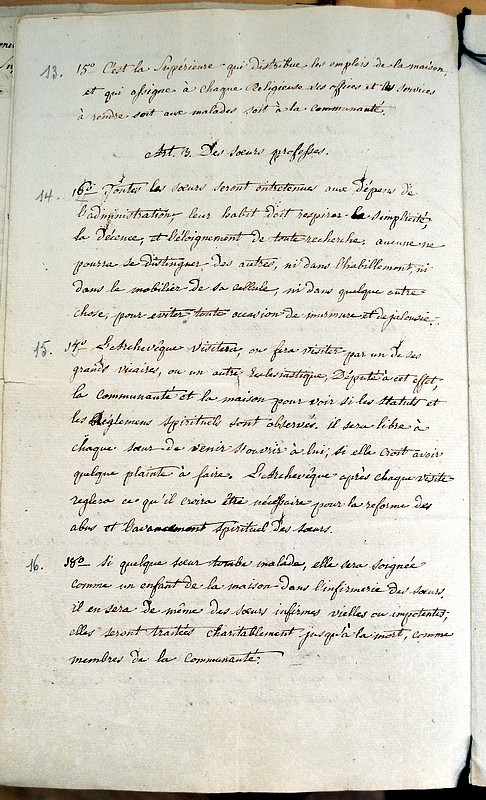 13. 15º C'est la Supérieure qui distribue les emplois de la maison,
et qui assigne à chaque Religieuse ses offices et les services
à rendre soit aux malades soit à la Communauté.
Art. 3. Des sœurs professes.
14. 16º Toutes les sœurs seront entretenues aux dépens de
l'administration, leur habit doit respirer la simplicité,
la Décence, et l'éloignement de toute recherche; aucune ne
pourra se distinguer des autres, ni dans l'habillement, ni
dans le mobilier de sa cellule, ni dans quelque autre
chose, pour eviter toute occasion de murmure et de jalousie.
15. 17º L'Archevêque visitera, ou fera visiter par un de ses
grands vicaires, ou un autre Ecclesiastique, Député à cet effet,
la communauté et la maison pour voir si les statuts et
les Réglemens spirituels sont observés. il sera libre à
chaque sœur de venir s'ouvrir à lui, si elle croit avoir
quelque plainte à faire. L'Archevêque après chaque visite
reglera ce qu'il croira être nécessaire pour la reforme des
abus et l'avancement spirituel des sœurs.
16. 18º Si quelque sœur tombe malade, elle sera soignée
comme un enfant de la maison dans l'infirmerie des sœurs,
il en sera de même des sœurs infirmes vielles ou impotentes,
elles seront traitées charitablement jusqu'à la mort, comme
membres de la Communauté.